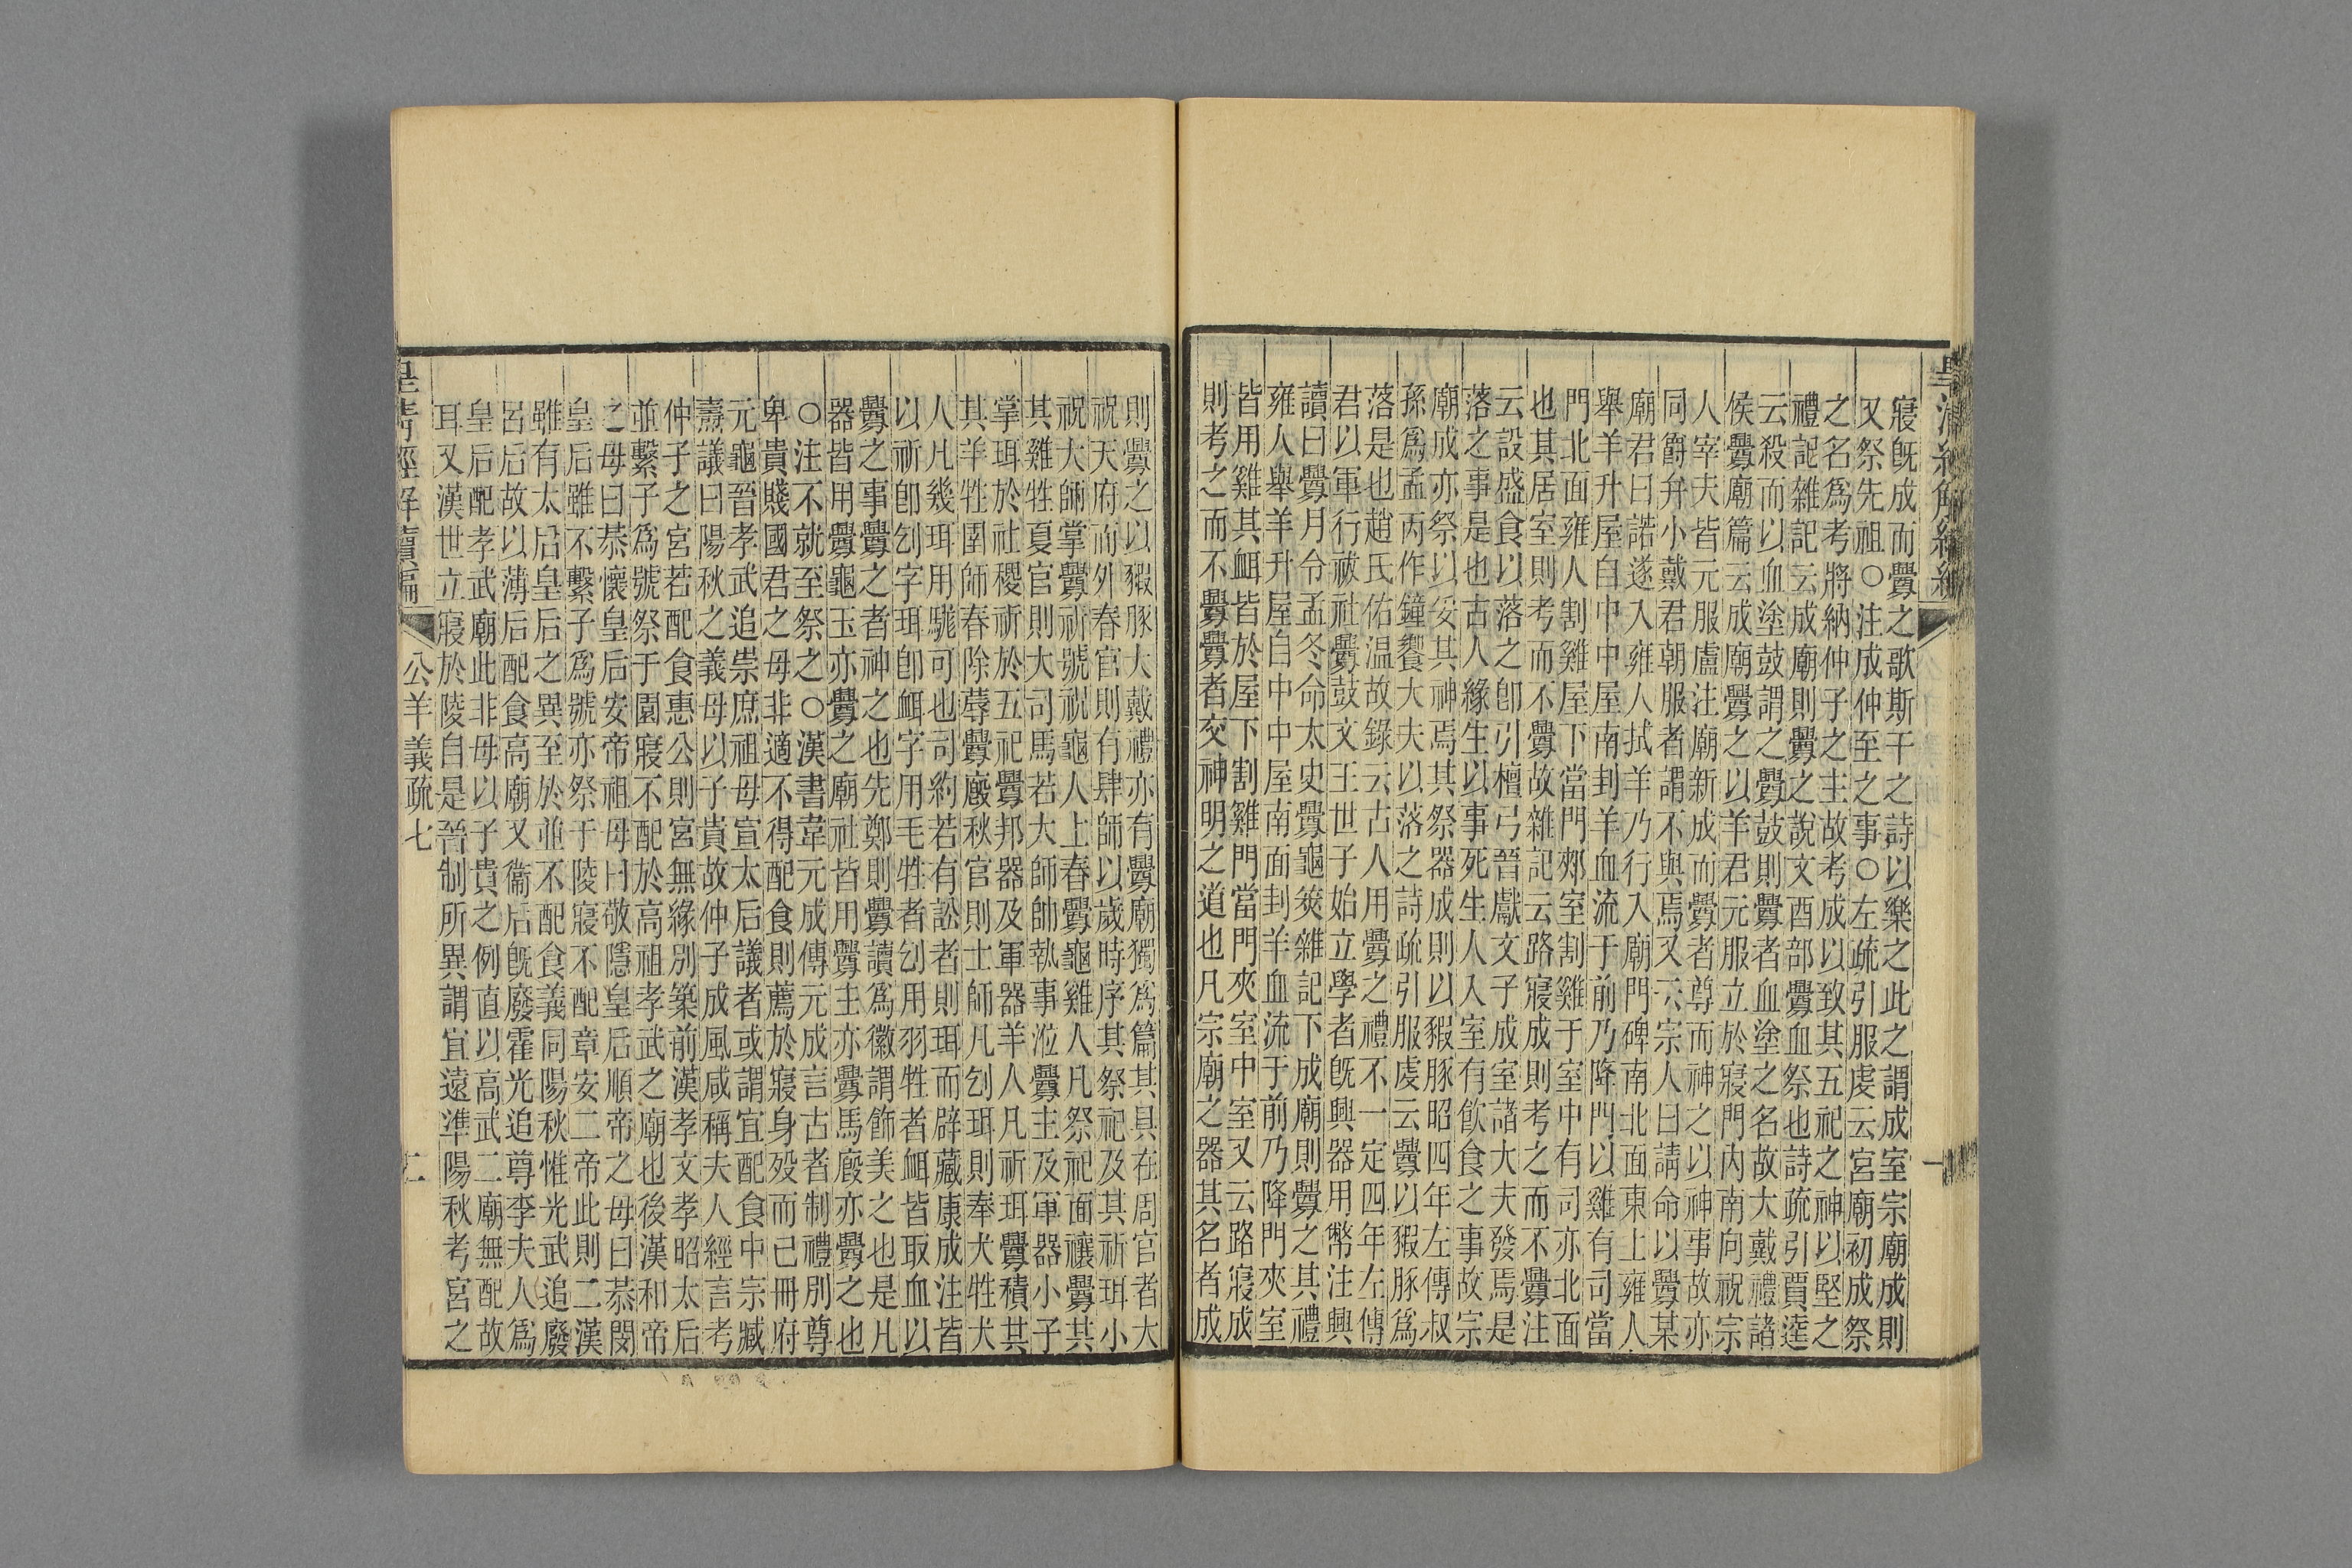 皇清經解續編
一
寢旣成而釁之歌斯干之詩以樂之此之謂成室宗廟成則
又祭先祖○注成仲至之事○左疏引服虔云宮廟初成祭
之名爲考將納仲子之主故考成以致其五祀之神以堅之
禮記雜記云成廟則釁之說文酉部釁血祭也詩疏引賈逵
云殺而以血塗鼓謂之釁鼓則釁者血塗之名故大戴禮諸
侯釁廟篇云成廟釁之以羊君元服立於寢門內南向祝宗
人宰夫皆元服盧注廟新成而釁者尊而神之以神事故亦
同爵弁小戴君朝服者謂不與焉又云宗人曰請命以釁某
廟君曰諾遂入雍人拭羊乃行入廟門碑南北面東上雍人
舉羊升屋自中中屋南刲羊血流于前乃降門以雞有司當
門北面雍人割雞屋下當門郟室割雞于室中有司亦北面
也其居室則考而不釁故雜記云路寢成則考之而不釁注
云設盛食以落之卽引檀弓晉獻文子成室諸大夫發焉是
落之事是也古人緣生以事死生人入室有飮食之事故宗
廟成亦祭以妥其神焉其祭器成則以豭豚昭四年左傳叔
孫爲孟丙作鐘饗大夫以落之詩疏引服虔云釁以豭豚爲
落是也趙氏佑温故錄云古人用釁之禮不一定四年左傳
君以軍行祓社釁鼓文王世子始立學者旣興器用幣注興
讀曰釁月令孟冬命太史釁龜筴雜記下成廟則釁之其禮
雍人舉羊升屋自中中屋南面刲羊血流于前乃降門夾室
皆用雞其衈皆於屋下割雞門當門夾室中室又云路寢成
則考之而不釁釁者交神明之道也凡宗廟之器其名者成
則釁之以豭豚大戴禮亦有釁廟獨爲篇其具在周官者大
祝天府而外春官則有肆師以歲時序其祭祀及其祈珥小
祝大師掌釁祈號祝龜人上春釁龜雞人凡祭祀面禳釁其
其雞牲夏官則大司馬若大師帥執事涖釁主及軍器小子
掌珥於社稷祈於五祀釁邦器及軍器羊人凡祈珥釁積其
其羊牲圉師春除蓐釁廄秋官則士師凡刉珥則奉犬牲犬
人凡幾珥用駹可也司約若有訟者則珥而辟藏康成注皆
以祈卽刉字珥卽衈字用毛牲者刉用羽牲者衈皆取血以
釁之事釁之者神之也先鄭則釁讀爲徽謂飾美之也是凡
器皆用釁龜玉亦釁之廟社皆用釁主亦釁馬廄亦釁之也
○注不就至祭之○漢書韋元成傳元成言古者制禮別尊
卑貴賤國君之母非適不得配食則薦於寢身歿而已冊府
元龜晉孝武追崇庶祖母宣太后議者或謂宜配食中宗臧
燾議曰陽秋之義母以子貴故仲子成風咸稱夫人經言考
仲子之宮若配食惠公則宮無緣別築前漢孝文孝昭太后
並繫子爲號祭于園寢不配於高祖孝武之廟也後漢和帝
之母曰恭懷皇后安帝祖母曰敬隱皇后順帝之母曰恭閔
皇后雖不繫子爲號亦祭于陵寢不配章安二帝此則二漢
雖有太后皇后之異至於並不配食義同陽秋惟光武追廢
呂后故以薄后配食高廟又衞后旣廢霍光追尊李夫人爲
皇后配孝武廟此非母以子貴之例直以高武二廟無配故
耳又漢世立寢於陵自是晉制所異謂宜遠準陽秋考宮之
皇清經解續編
公羊義疏七
二